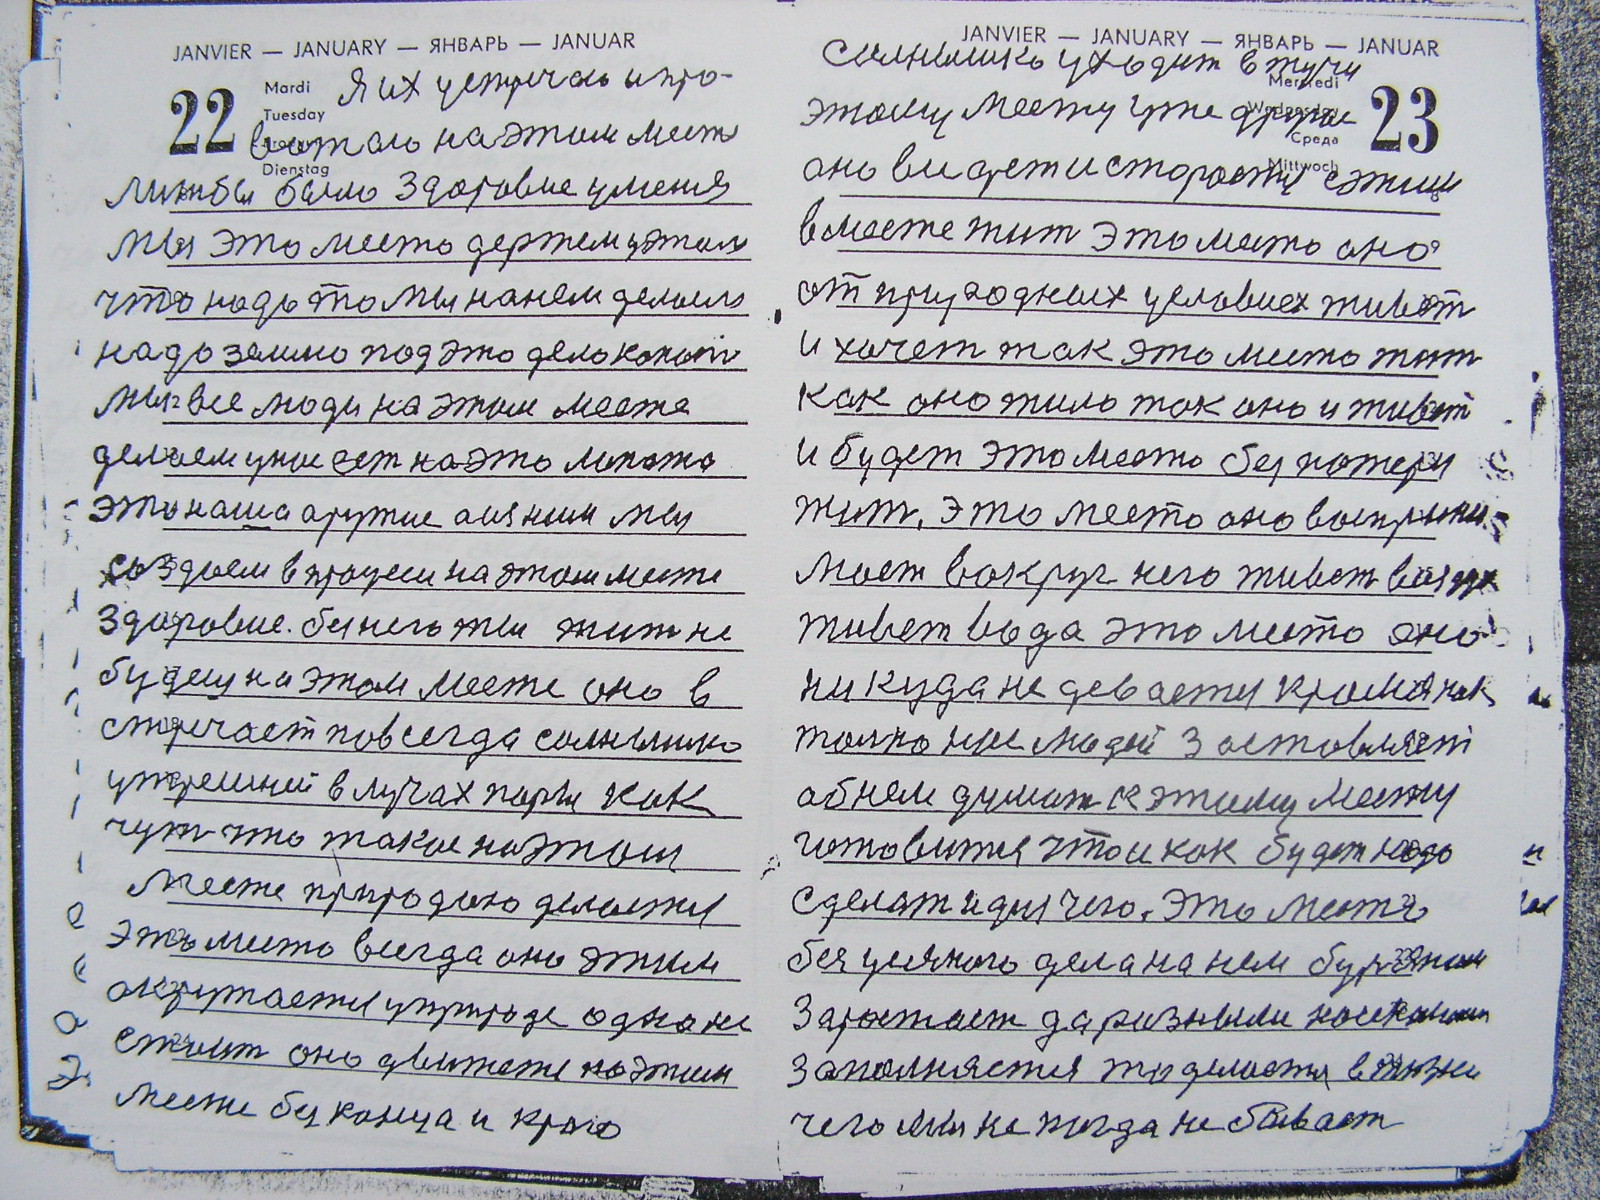 JANVIER — JANUARY — ЯНВАРЬ — JANUAR
22
Mardi
Tuesday
Dienstag
Я их устречаю и про-
вожаю на этом месте
лишбы было здоровие уменя
мы это место держем этим
что надо то мы на нем делаем
надо землю под это дело копат
мы все люди на этом месте
делаем
это наша оружие
создаем в процеси на этом месте
здоровие. без него мы жит не
будем на этом месте оно в
стречает повсегда солнышко
утрешней в лучах
чут что такое на этом
месте природою делается
это место всегда оно этим
окружается у природе одно не
стоит оно движется на этим
месте без конца и краю
JANVIER — JANUARY — ЯНВАРЬ — JANUAR
23
Mercredi
Wednesday
Среда
Mittwoch
Солнышко уходит в тучи
этому месту уже другие
оно видет и сторонится с этим
вместе жит это место оно
от природных условиех живет
и хочет так это место жит
как оно жило так оно и живет
и будет это место без потери
жит, это место оно воспрыни-
мает вокруг него живет воздух
живет вода это место оно
никуда не девается кромя как
толко нас людей заставляет
об нем думат к этому месту
готовится что и как будет надо
сделат и для чего. Это место
без усякого дела на нем буряном
заростает да разными насекомыми
заполняется то делается в жизни
чего мы не когда не бывает